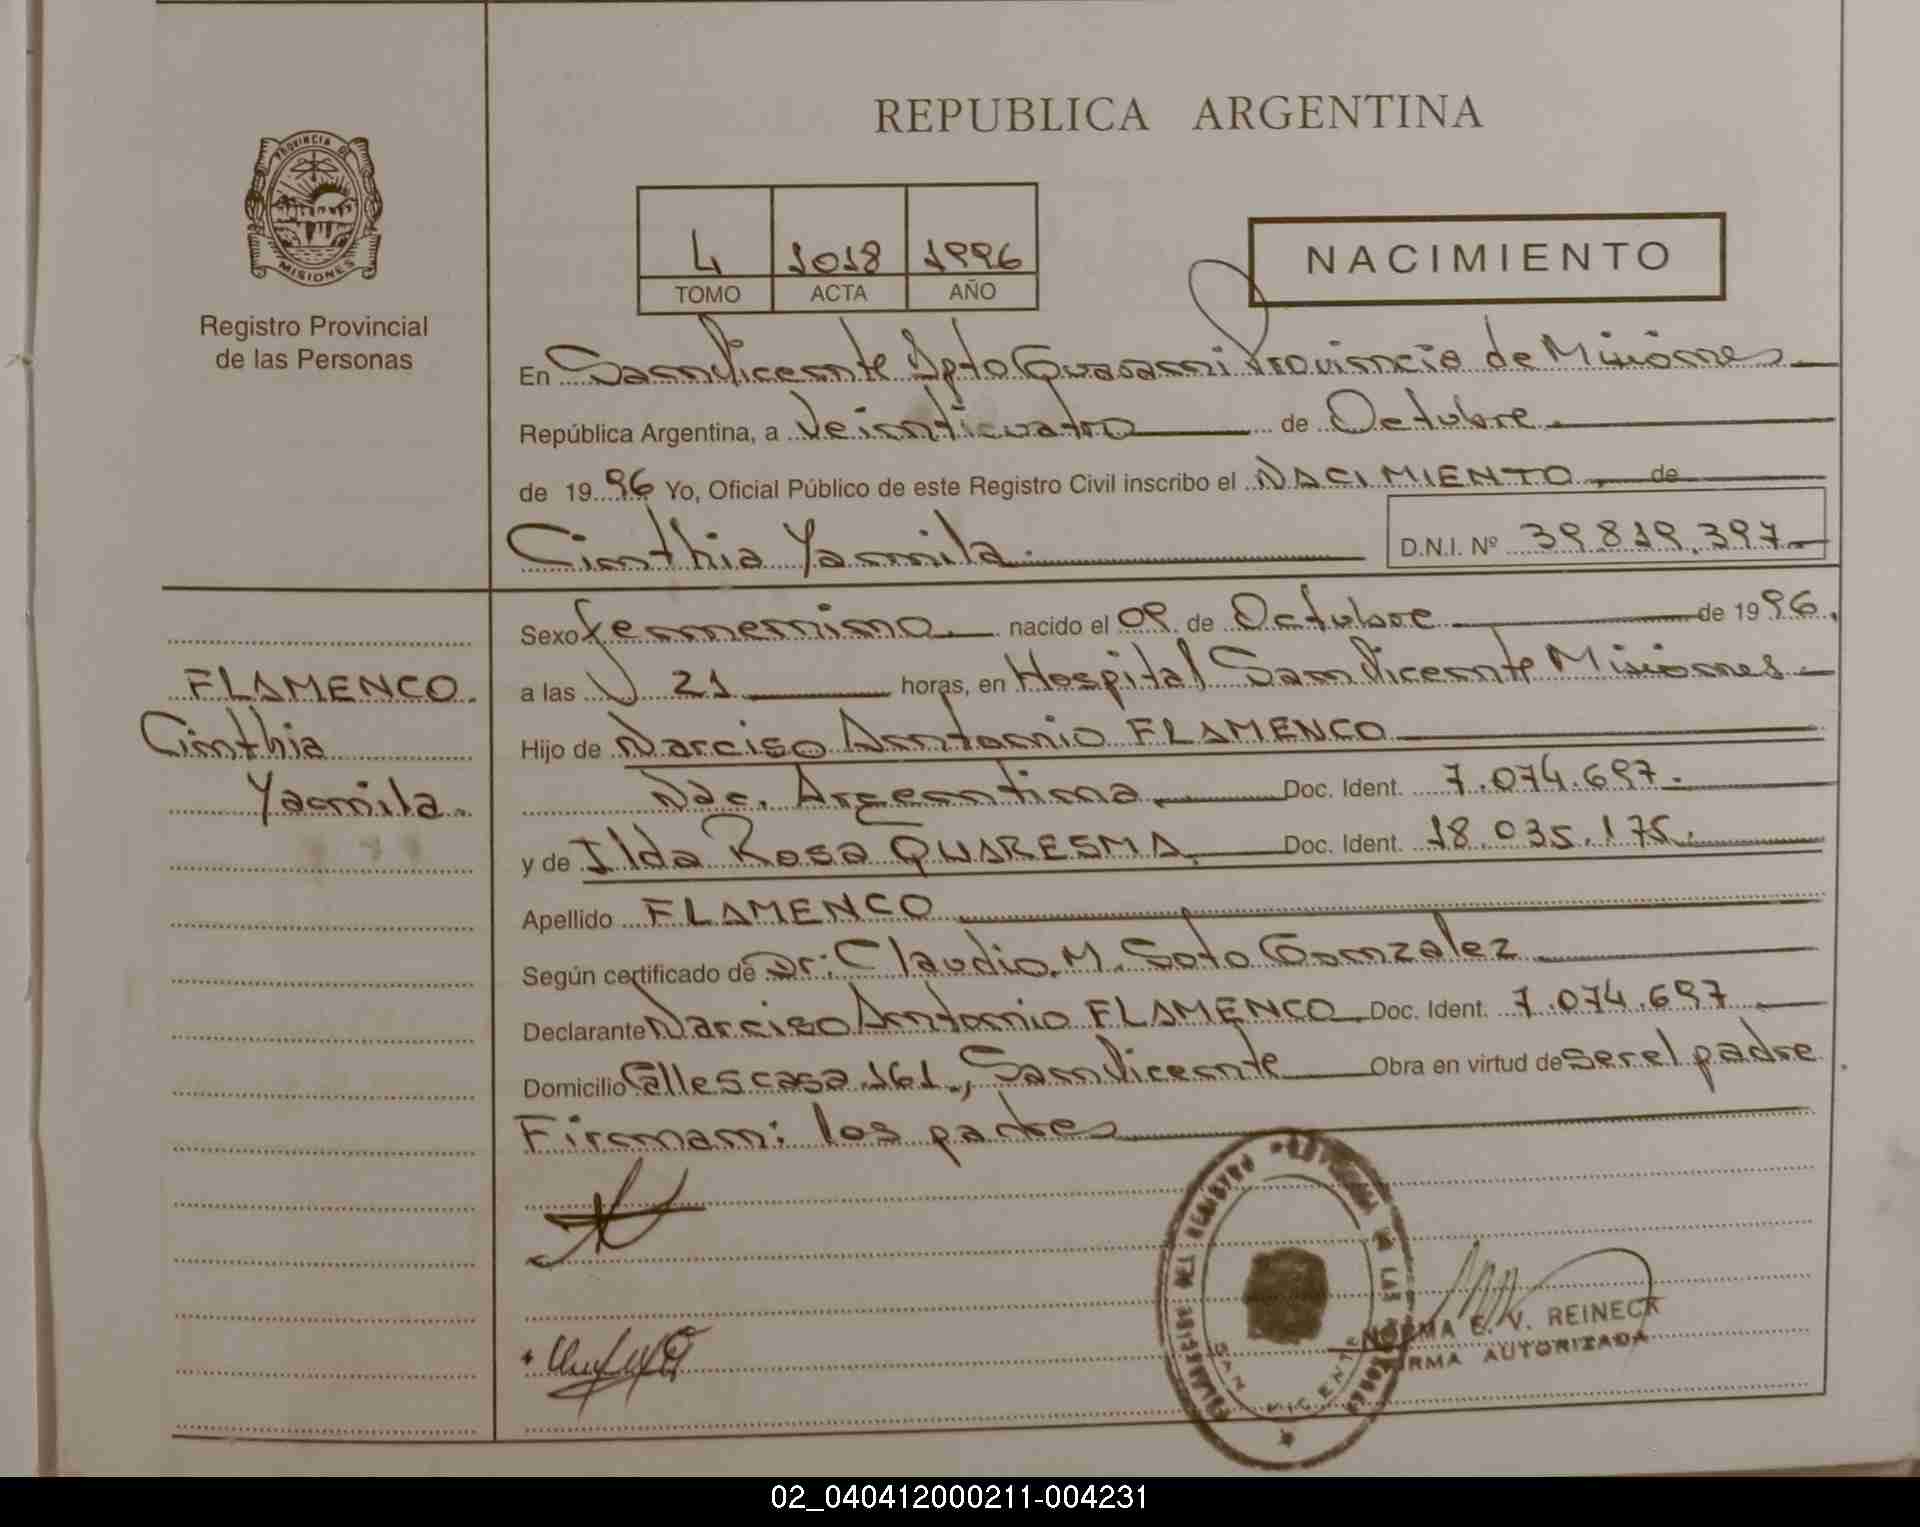 REPUBLICA ARGENTINA
PROVINCIA DE
MISIONES
Registro Provincial
de las Personas
4 1018 1996
TOMO ACTA AÑO
NACIMIENTO
En San Vicente Dpto Guarani Provincia de Misiones
República Argentina, a veinticuatro de Octubre
de 1996 Yo, Oficial Público de este Registro Civil inscribo el NACIMIENTO de
Cinthia Yamila. D.N.I. Nº 39.819.397
Sexo femenino nacido el 09 de Octubre de 1996.
a las 21 horas, en Hospital San Vicente Misiones
FLAMENCO
Cinthia
Yamila.
Hijo de Narciso Antonio FLAMENCO
Nac. Argentina Doc. Ident. 7.074.697.
y de Ilda Rosa QUARESMA Doc. Ident. 18.035.175.
Apellido FLAMENCO
Según certificado de Dr: Claudio M. Soto Gonzalez
Declarante Narciso Antonio FLAMENCO Doc. Ident. 7.074.697
Domicilio Calle 5 casa 161, San Vicente Obra en virtud de ser el padre
Firman: los padres
DEL REGISTRO DE LAS
SAN VICENTE
NORMA E. V. REINECK
FIRMA AUTORIZADA
02_040412000211-004231